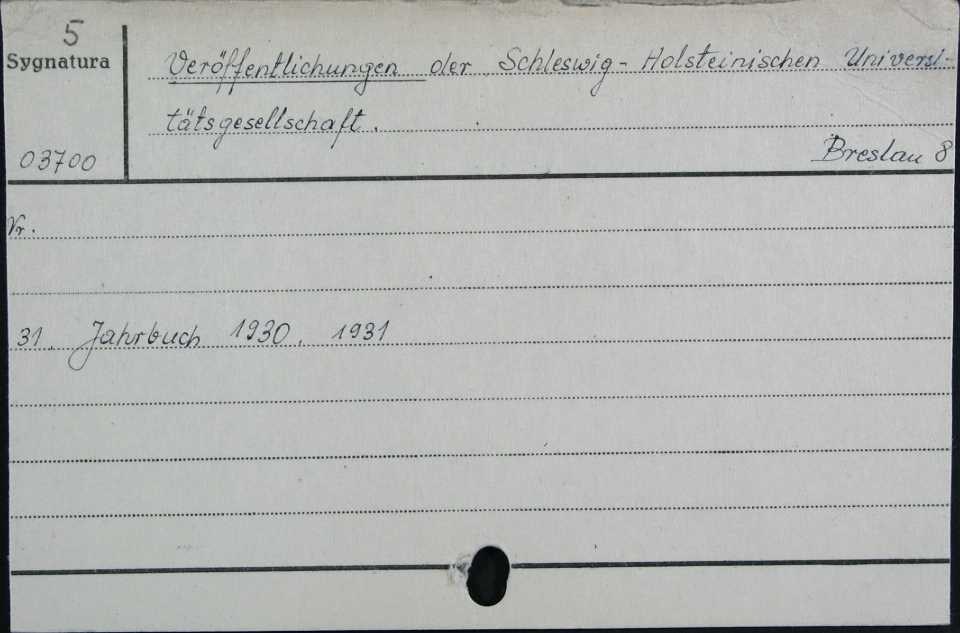 5
Sygnatura
Veröffentlichungen der Schleswig-Holsteinischen Universi-
tätsgesellschaft.
03700
Breslau 8
Nr.
31. Jahrbuch 1930. 1931